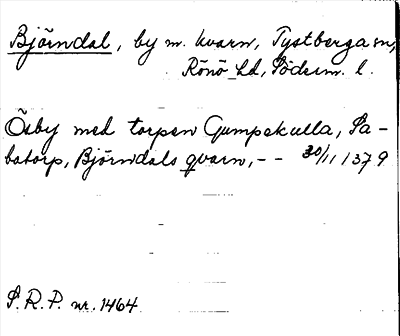 Björndal, by m. kvarn, Tystberga sn,
Rönö hd, Söderm. l.
Ösby med torpen Gumpekulla, Sa-
batorp, Björndals qvarn, - - 30/11 1379
S. R. P. nr. 1464.